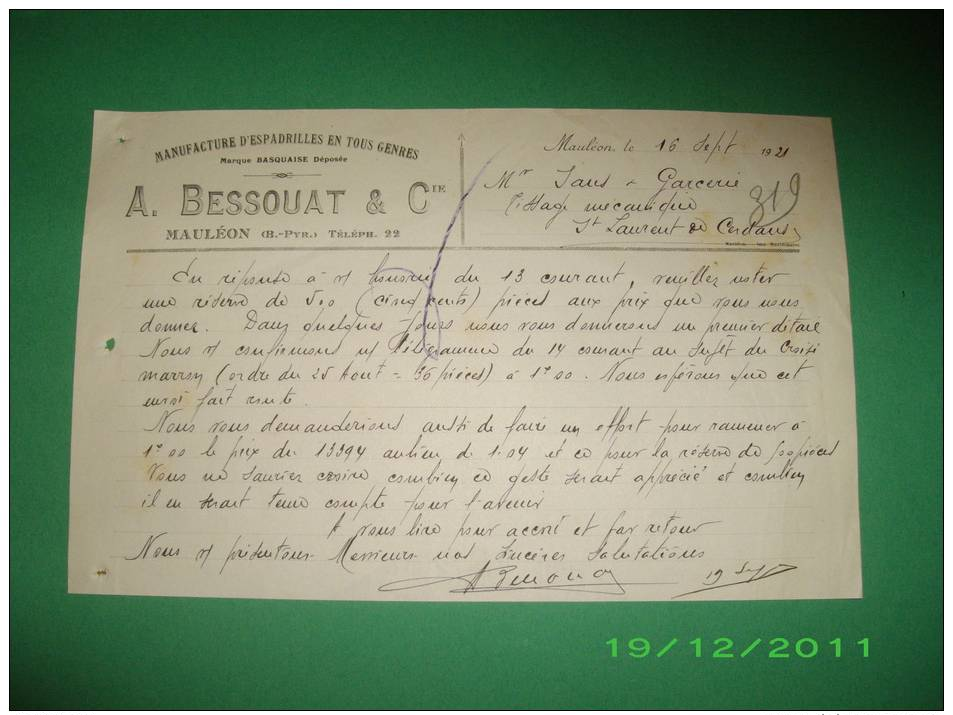 MANUFACTURE D'ESPADRILLES EN TOUS GENRES
Marque BASQUAISE Déposée
A. BESSOUAT & CIE
MAULÉON (B.-PYR.) TÉLÉPH. 22
Mauléon, le 16 Sept 1921
Mrs Sans & Garcerie
Tissage mécanique
St Laurent de Cerdans
319
En réponse à v/ honorée du 13 courant, veuillez noter
une réserve de 500 (cinq cents) pièces aux prix que vous nous
donnez. Dans quelques jours nous vous donnerons un premier détail
Nous v/ confirmons n/ Télégramme du 14 courant au sujet du Croisé
marron (ordre du 25 Aout = 36 pièces) à 1f00. Nous espérons que cet
envoi fait route.
Nous vous demanderions aussi de faire un effort pour ramener à
1f00 le prix du 13394 au lieu de 1.04 et ce pour la réserve de 500 pièces
Vous ne sauriez croire combien ce geste serait apprécié et combien
il en serait tenu compte pour l'avenir
A vous lire pour accord et par retour
Nous v/ présentons Messieurs nos sincères salutations
19 Sept
19/12/2011